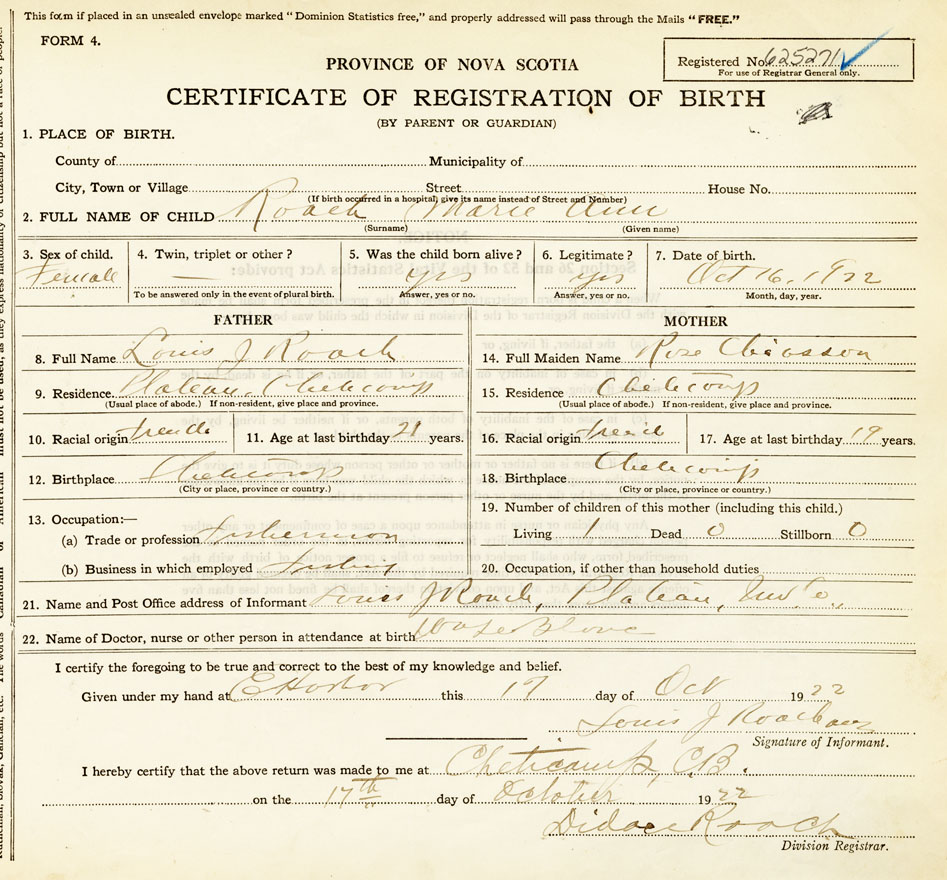 This form if placed in an unsealed envelope marked "Dominion Statistics free," and properly addressed will pass through the Mails "FREE."
FORM 4.
Registered No. 625271
For use of Registrar General only.
PROVINCE OF NOVA SCOTIA
CERTIFICATE OF REGISTRATION OF BIRTH
(BY PARENT OR GUARDIAN)
1. PLACE OF BIRTH.
County of Municipality of
City, Town or Village Street House No.
(If birth occurred in a hospital, give its name instead of Street and Number)
2. FULL NAME OF CHILD Roach Marie Ann
(Surname) (Given name)
3. Sex of child. 4. Twin, triplet or other? 5. Was the child born alive? 6. Legitimate? 7. Date of birth.
Female — yes yes Oct 16, 1922
To be answered only in the event of plural birth. Answer, yes or no. Answer, yes or no. Month, day, year.
FATHER
8. Full Name Louis J Roach
9. Residence Plateau, Cheticamp
(Usual place of abode.) If non-resident, give place and province.
10. Racial origin french 11. Age at last birthday 21 years.
12. Birthplace Cheticamp
(City or place, province or country.)
13. Occupation:—
(a) Trade or profession fisherman
(b) Business in which employed fishing
MOTHER
14. Full Maiden Name Rose Chiasson
15. Residence Cheticamp
(Usual place of abode.) If non-resident, give place and province.
16. Racial origin french 17. Age at last birthday 19 years.
18. Birthplace Cheticamp
(City or place, province or country.)
19. Number of children of this mother (including this child.)
Living 1 Dead 0 Stillborn 0
20. Occupation, if other than household duties
21. Name and Post Office address of Informant Louis J Roach, Plateau, Inv Co.,
22. Name of Doctor, nurse or other person in attendance at birth
I certify the foregoing to be true and correct to the best of my knowledge and belief.
Given under my hand at E Harbor this 17 day of Oct 1922
Louis J Roach
Signature of Informant.
I hereby certify that the above return was made to me at Cheticamp, C.B.
on the 17th day of October 1922
Didace Roach
Division Registrar.